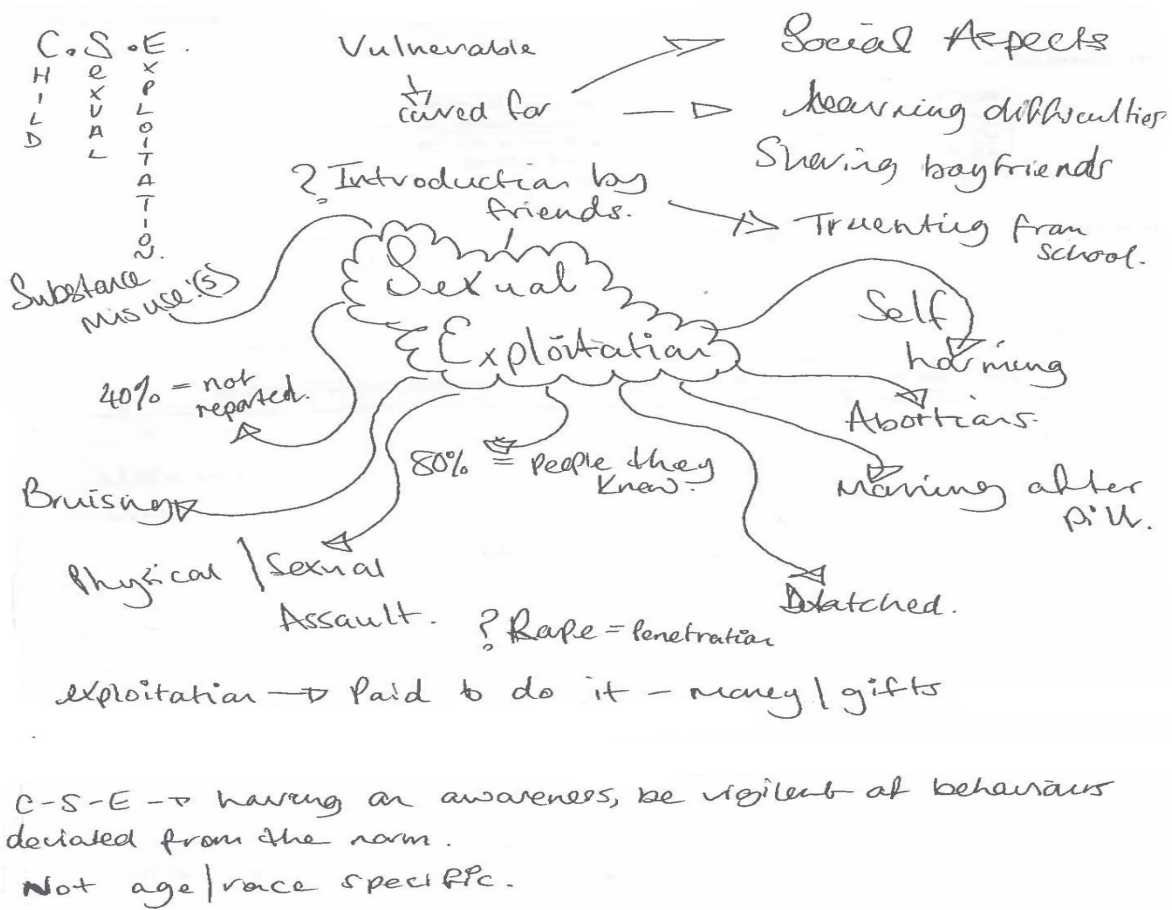 C.S.E.
CHILD
SeXUAL
EXPLOITATION.
Vulnerable
↓
cared for
Social Aspects
learning difficulties
Sharing boyfriends
Truenting from
school.
? Introduction by
friends.
Substance
misuse:(s)
Sexual
Exploitation
Self
harming
40% = not
reported.
Abortions.
80% = people they
know.
Morning after
pill.
Bruising
Physical / Sexual
Assault.
? Rape = Penetration
exploitation → Paid to do it – money / gifts
C-S-E → having an awareness, be vigilent of behaviours
deviated from the norm.
Not age / race specific.